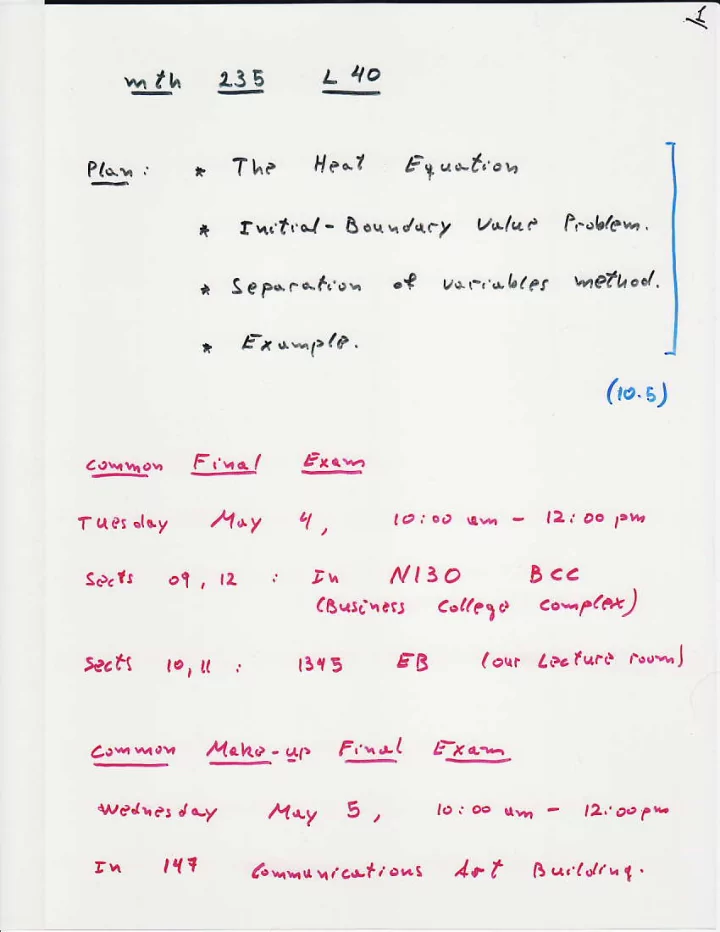 1
mth 235 L 40
Plan: * The Heat Equation
* Initial-Boundary Value Problem.
* Separation of variables method.
* Example.
(10.5)
Common Final Exam
Tuesday May 4, 10:00 am - 12:00 pm
Sects 09, 12 : In N130 BCC
(Business College Complex)
Sects 10, 11 : 1345 EB (our Lecture room)
Common Make-up Final Exam
Wednesday May 5, 10:00 am - 12:00 pm
In 147 Communications Art Building.